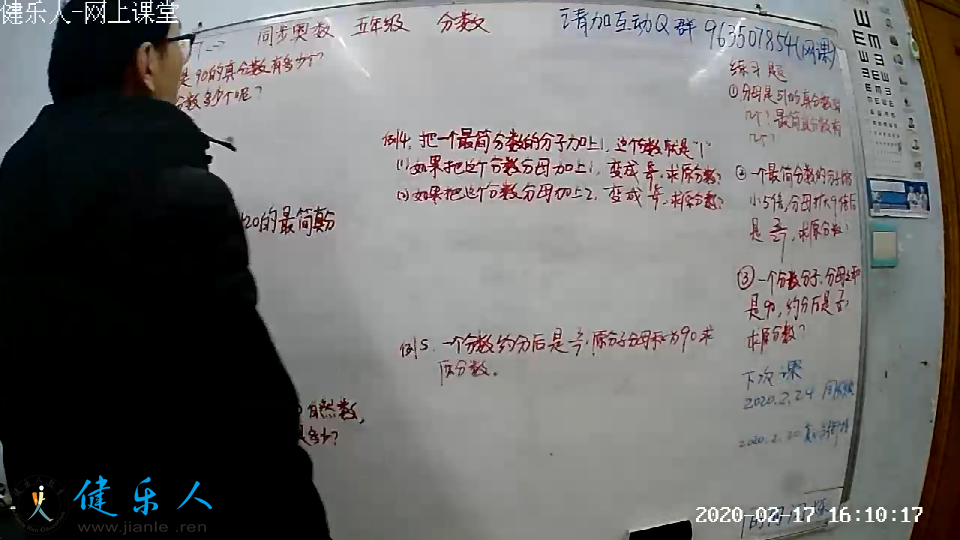 健乐人-网上课堂
同步奥数 五年级 分数 请加互动Q群 963507854(网课)
是90的真分数有多少个?
分数多少个呢?
20的最简真分
自然数,
是多少?
例4. 把一个最简分数的分子加上1, 这个分数就是"1"
(1) 如果把这个分数分母加上1, 变成
求原分数?
(2) 如果把这个分数分母加上2, 变成
求原分数?
例5. 一个分数约分后是
原分子分母和为90求
原分数。
练习题
①分母是51的真分数有
几个? 最简真分数有
几个?
②一个最简分数的分子缩
小5倍,分母扩大9倍后
是
求原分数?
③一个分数分子、分母之和
是90, 约分后是
求原分数?
下次课
2020.2.24
健乐人
www.jianle.ren
2020-02-17 16:10:17